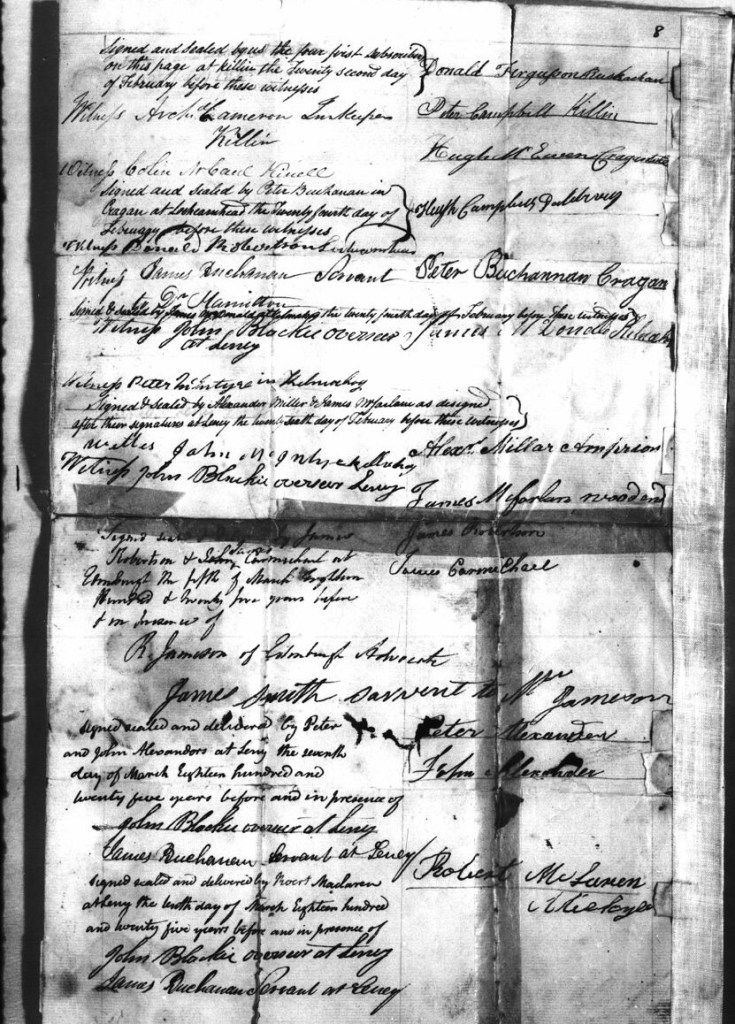 8
Signed and sealed by us the four first subscribers
on this page at Killin the Twenty second day
of February before these witnesses
Donald Fergusson Buchanan
Witness Archd Cameron Inkeeper
Killin
Peter Campbell Killin
Hugh McEwen
Witness Colin
Signed and sealed by Peter Buchanan in
Cragan at Lochearnhead the Twenty fourth day of
February before these witnesses
Hugh Campbell
Witness Donald Robertson Lochearnhead
Witness James Buchanan Servant
to Dr Hamilton
Peter Buchannan Cragan
Signed & sealed by James at the twenty fourth day of February before these witnesses
Witness John Blackie overseer
at Leney
James
Witness Peter McIntyre in
Signed & sealed by Alexander Miller & James Mcfarlane as designed
after their signatures at Leney the twenty sixth day of February before these witnesses
Witness John
Alexr Millar
Witness John Blackie overseer Leney
James Mcfarlan wood end
Signed James
Robertson & Carmichael at
Edinburgh the fifth of March Eighteen
Hundred & twenty five years before
& in presence of
James Robertson
James Carmichael
R Jameson of Edinburgh Advocate
James Smith sarvent to Mr Jameson
signed sealed and delivered by Peter
and John Alexanders at Leny the seventh
day of March Eighteen hundred and
twenty five years before and in presence of
Peter Alexander
John Alexander
John Blackie overseer at Leny
James Buchanan Servant at Leney
signed sealed and delivered by Robert Maclaren
at Leny the tenth day of March Eighteen hundred
and twenty five years before and in presence of
Robert McLaren
John Blackie overseer at Leney
James Buchanan Servant at Leney